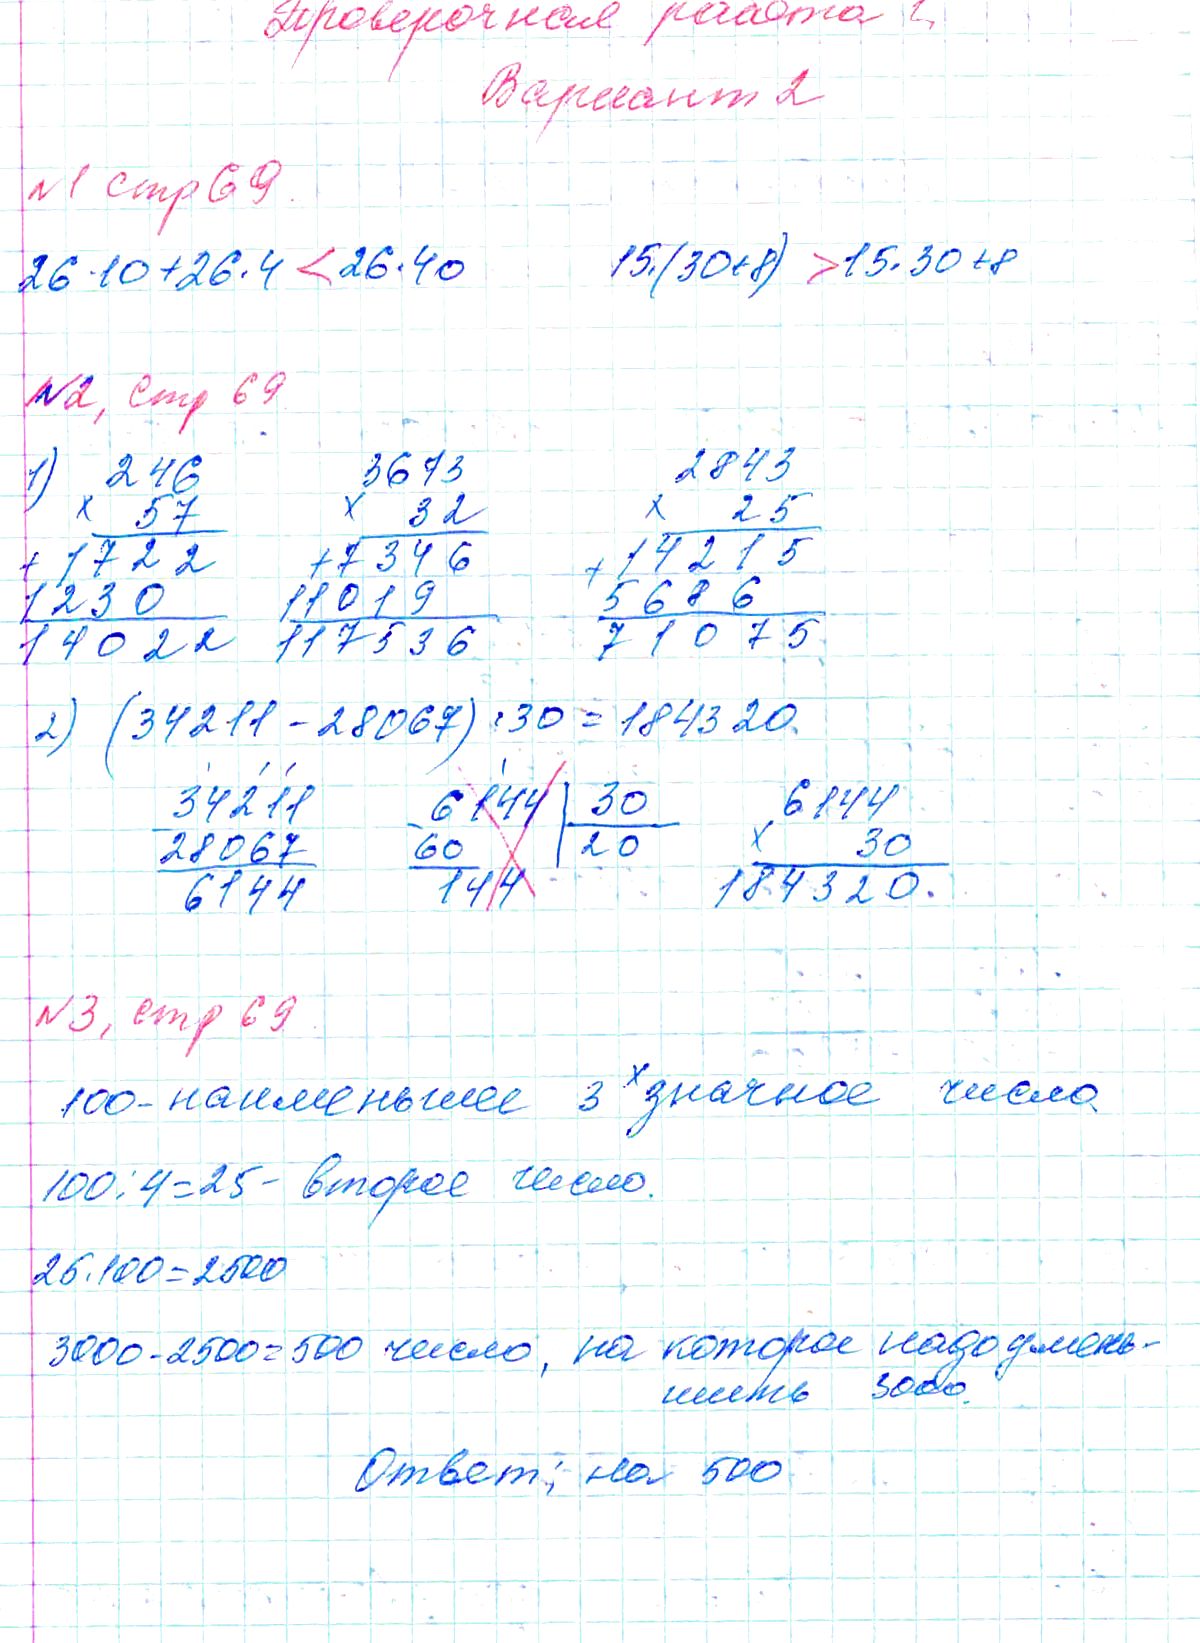 Проверочная работа 1
Вариант 2
№1 стр 69.
26·10+26·4 < 26·40 15·(30+8) > 15·30+8
№2, стр 69
1) 246 3673 2843
× 57 × 32 × 25
+1722 +7346 +14215
1230 11019 5686
14022 117536 71075
2) (34211-28067)·30=184320.
34211 6144 30 6144
28067 60 20 × 30
6144 144 184320.
№3, стр 69
100-наименьшее 3х значное число
100:4=25- второе число.
25.100=2500
3000-2500=500 число, на которое надо умень-
шить 3000.
Ответ: на 500